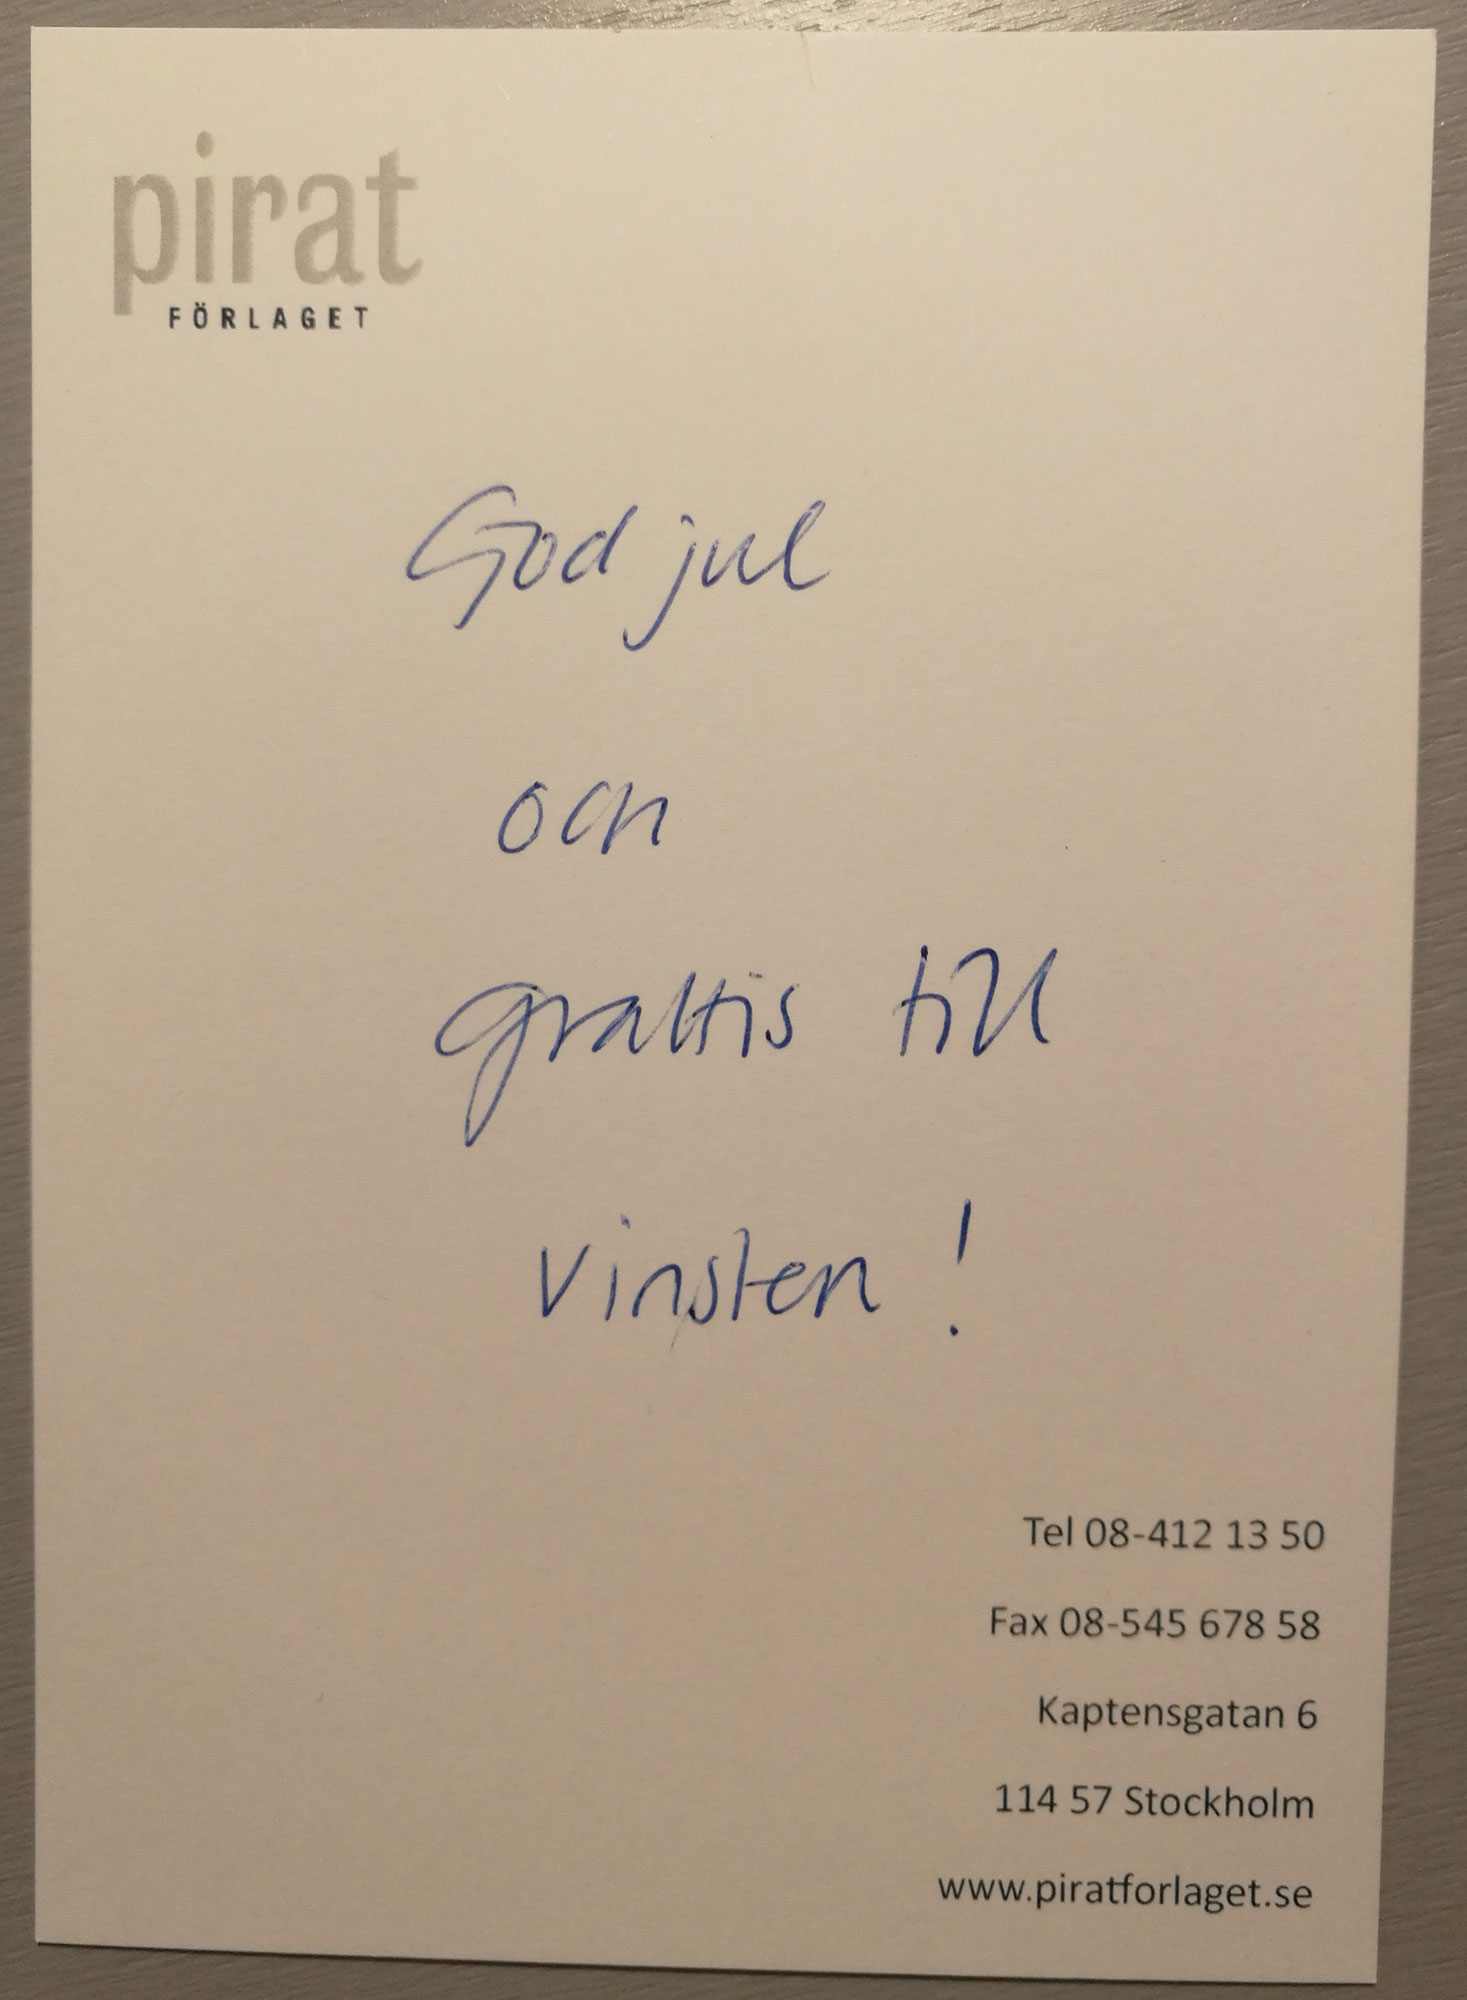 pirat
FÖRLAGET
God jul
och
grattis till
vinsten!
Tel 08-412 13 50
Fax 08-545 678 58
Kaptensgatan 6
114 57 Stockholm
www.piratforlaget.se